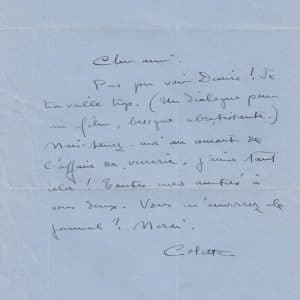 Cher ami.
Pas pu voir Denis ! Je
travaille trop. (Un dialogue pour
un film, besogne abrutissante.)
Mais tenez-moi au courant de
l'affaire de verrerie, j'aime tant
cela ! Toutes mes amitiés à
vous deux. Vous m'enverrez le
journal ? Merci.
Colette